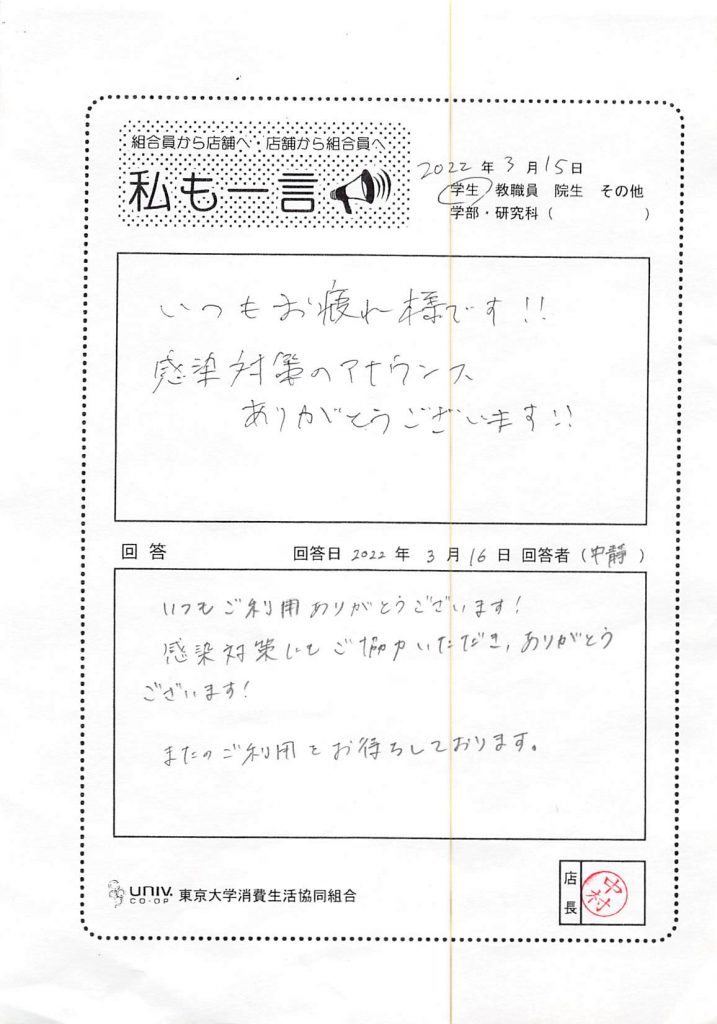 組合員から店舗へ・店舗から組合員へ
私も一言
2022年3月15日
学生 教職員 院生 その他
学部・研究科( )
いつもお疲れ様です!!
感染対策のアナウンス
ありがとうございます!!
回答 回答日 2022年 3月16日 回答者(中静)
いつもご利用ありがとうございます!
感染対策にもご協力いただき、ありがとう
ございます!
またのご利用をお待ちしております。
UNIV.
CO-OP
東京大学消費生活協同組合
店長
中村